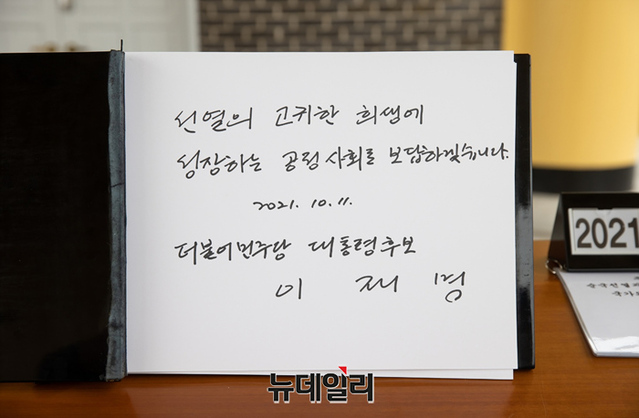 선열의 고귀한 희생에
성장하는 공정사회로 보답하겠습니다.
2021. 10. 11.
더불어민주당 대통령후보
이 재 명
2021
뉴데일리